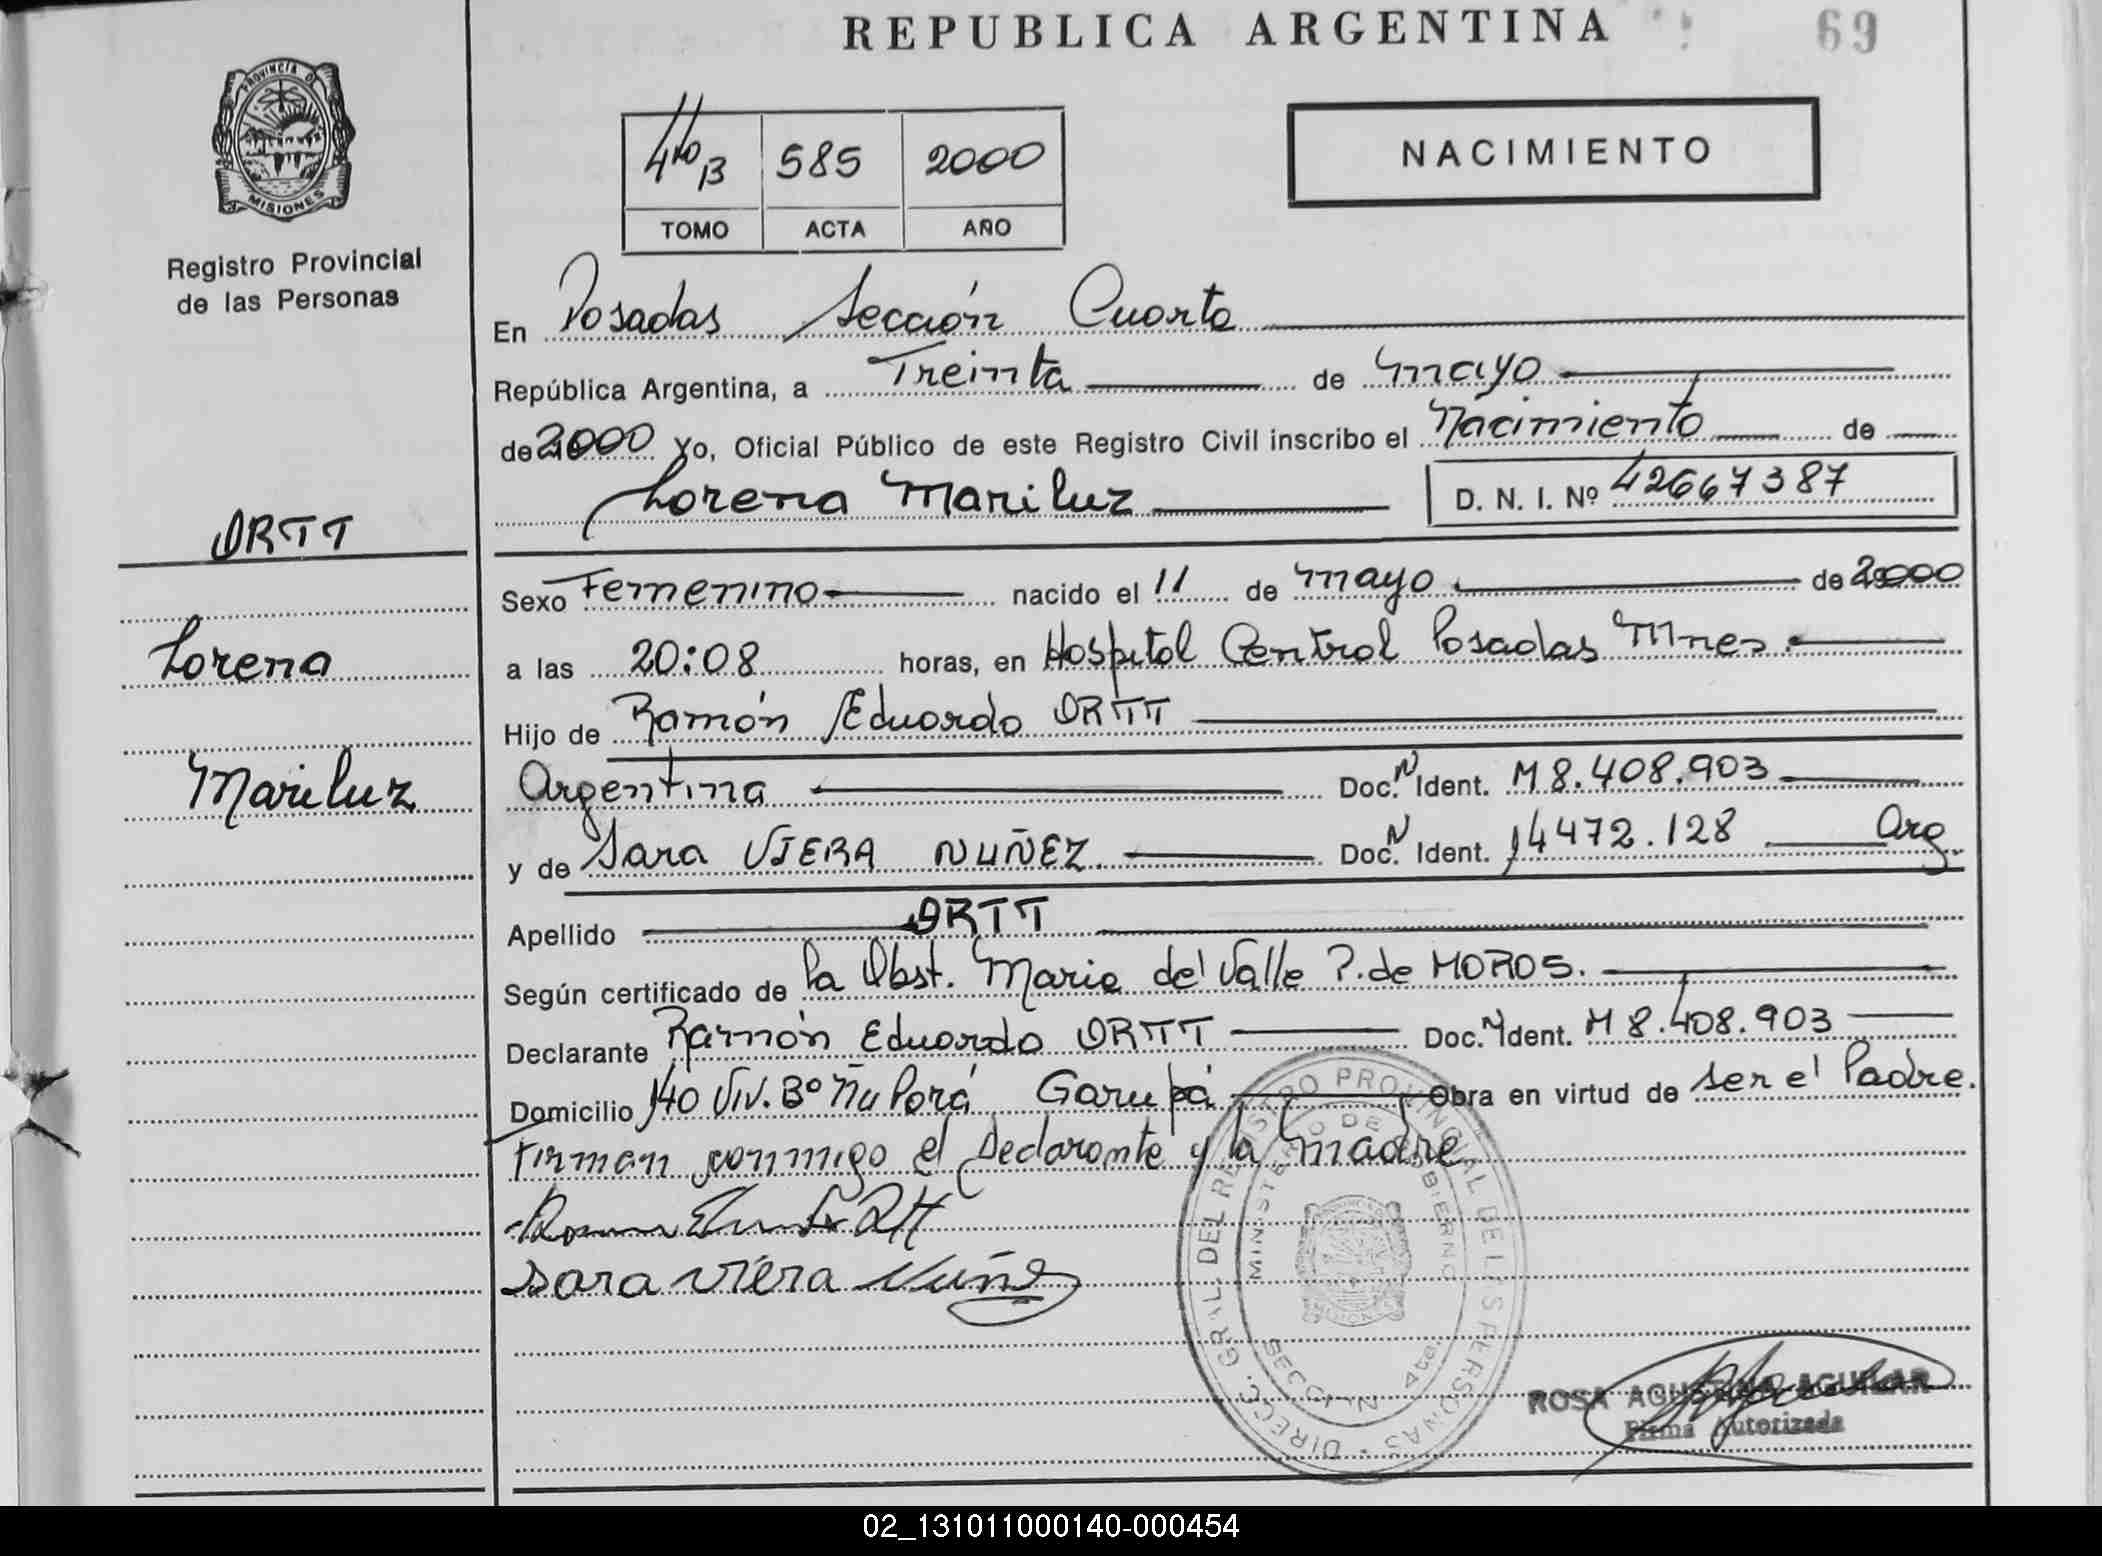 REPUBLICA ARGENTINA
69
PROVINCIA DE
MISIONES
Registro Provincial
de las Personas
4to B 585 2000
TOMO ACTA AÑO
NACIMIENTO
En Posadas Sección Cuarta
República Argentina, a Treinta de mayo
de 2000 Yo, Oficial Público de este Registro Civil inscribo el Nacimiento de
Lorena Mariluz D. N. I. Nº 42667387
ORTT
Lorena
Mariluz
Sexo Femenino nacido el 11 de mayo de 2000
a las 20:08 horas, en Hospital Central Posadas Mnes.
Hijo de Ramón Eduardo ORTT
Argentina Doc. N Ident. M 8.408.903
y de Sara VIERA NUÑEZ Doc. N Ident. 14472.128 Arg.
Apellido ORTT
Según certificado de la Obst. Maria del Valle P. de MOROS.
Declarante Ramón Eduardo ORTT Doc. N Ident. M 8.408.903
Domicilio 140 Viv. Bº Ñu Porá Garupá Obra en virtud de ser el Padre.
Firman conmigo el Declarante y la madre
Sara Viera Nuñez
DIRECC. GRAL. DEL REGISTRO PROVINCIAL DE LAS PERSONAS
MINISTERIO DE GOBIERNO
SECCION 4ta.
ROSA AGUSTINA AGUILAR
Firma Autorizada
02_131011000140-000454